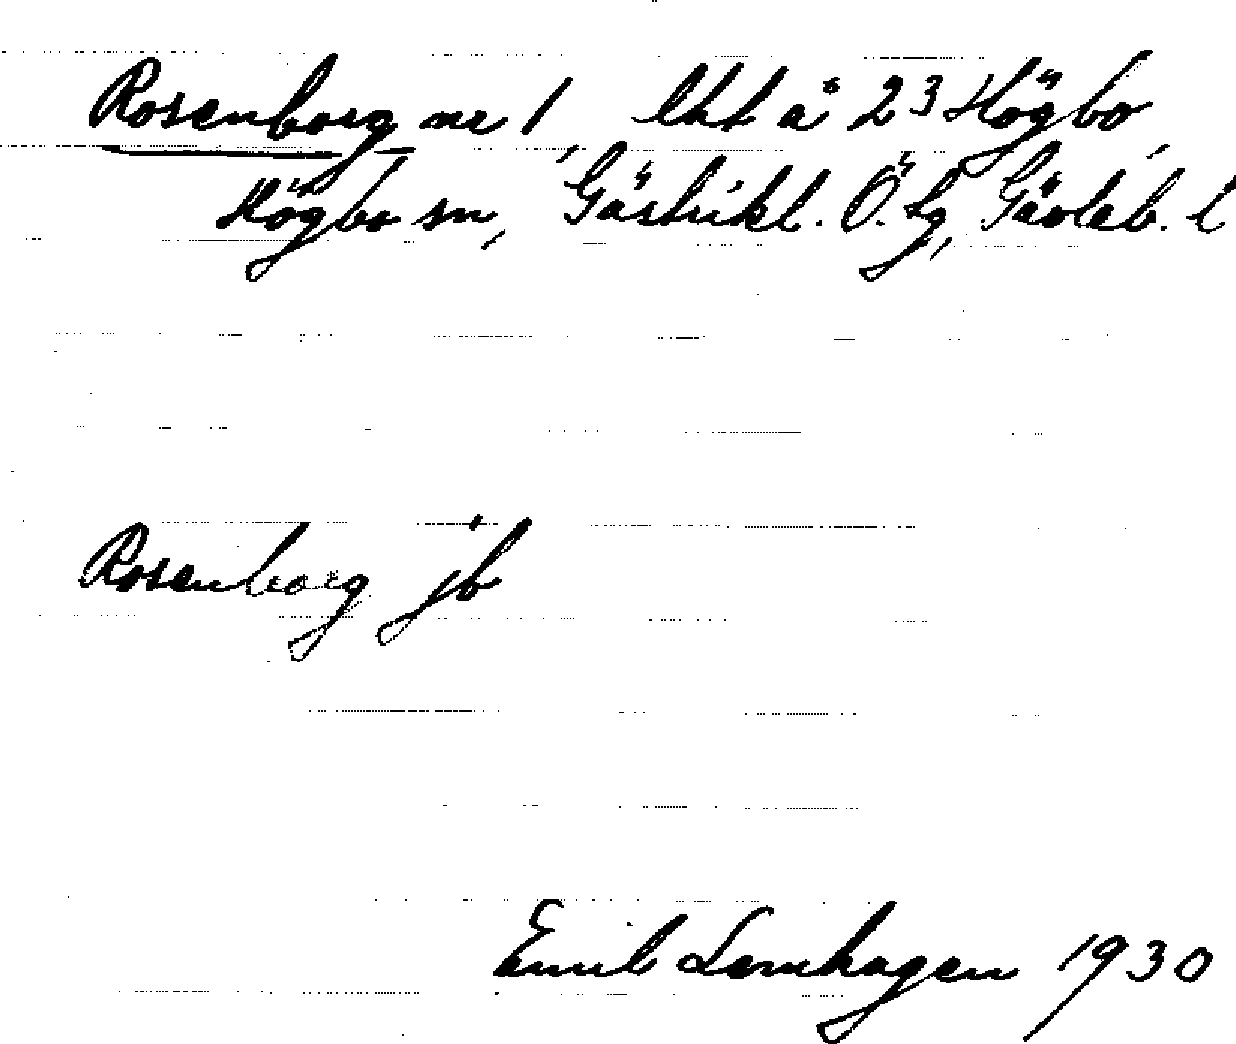 Rosenborg nr 1, lht å 23 Högbo,
Högbo sn, Gästrikl. Ö. tg, Gävleb. l
Rosenborg jb
Emil Lomhagen 1930